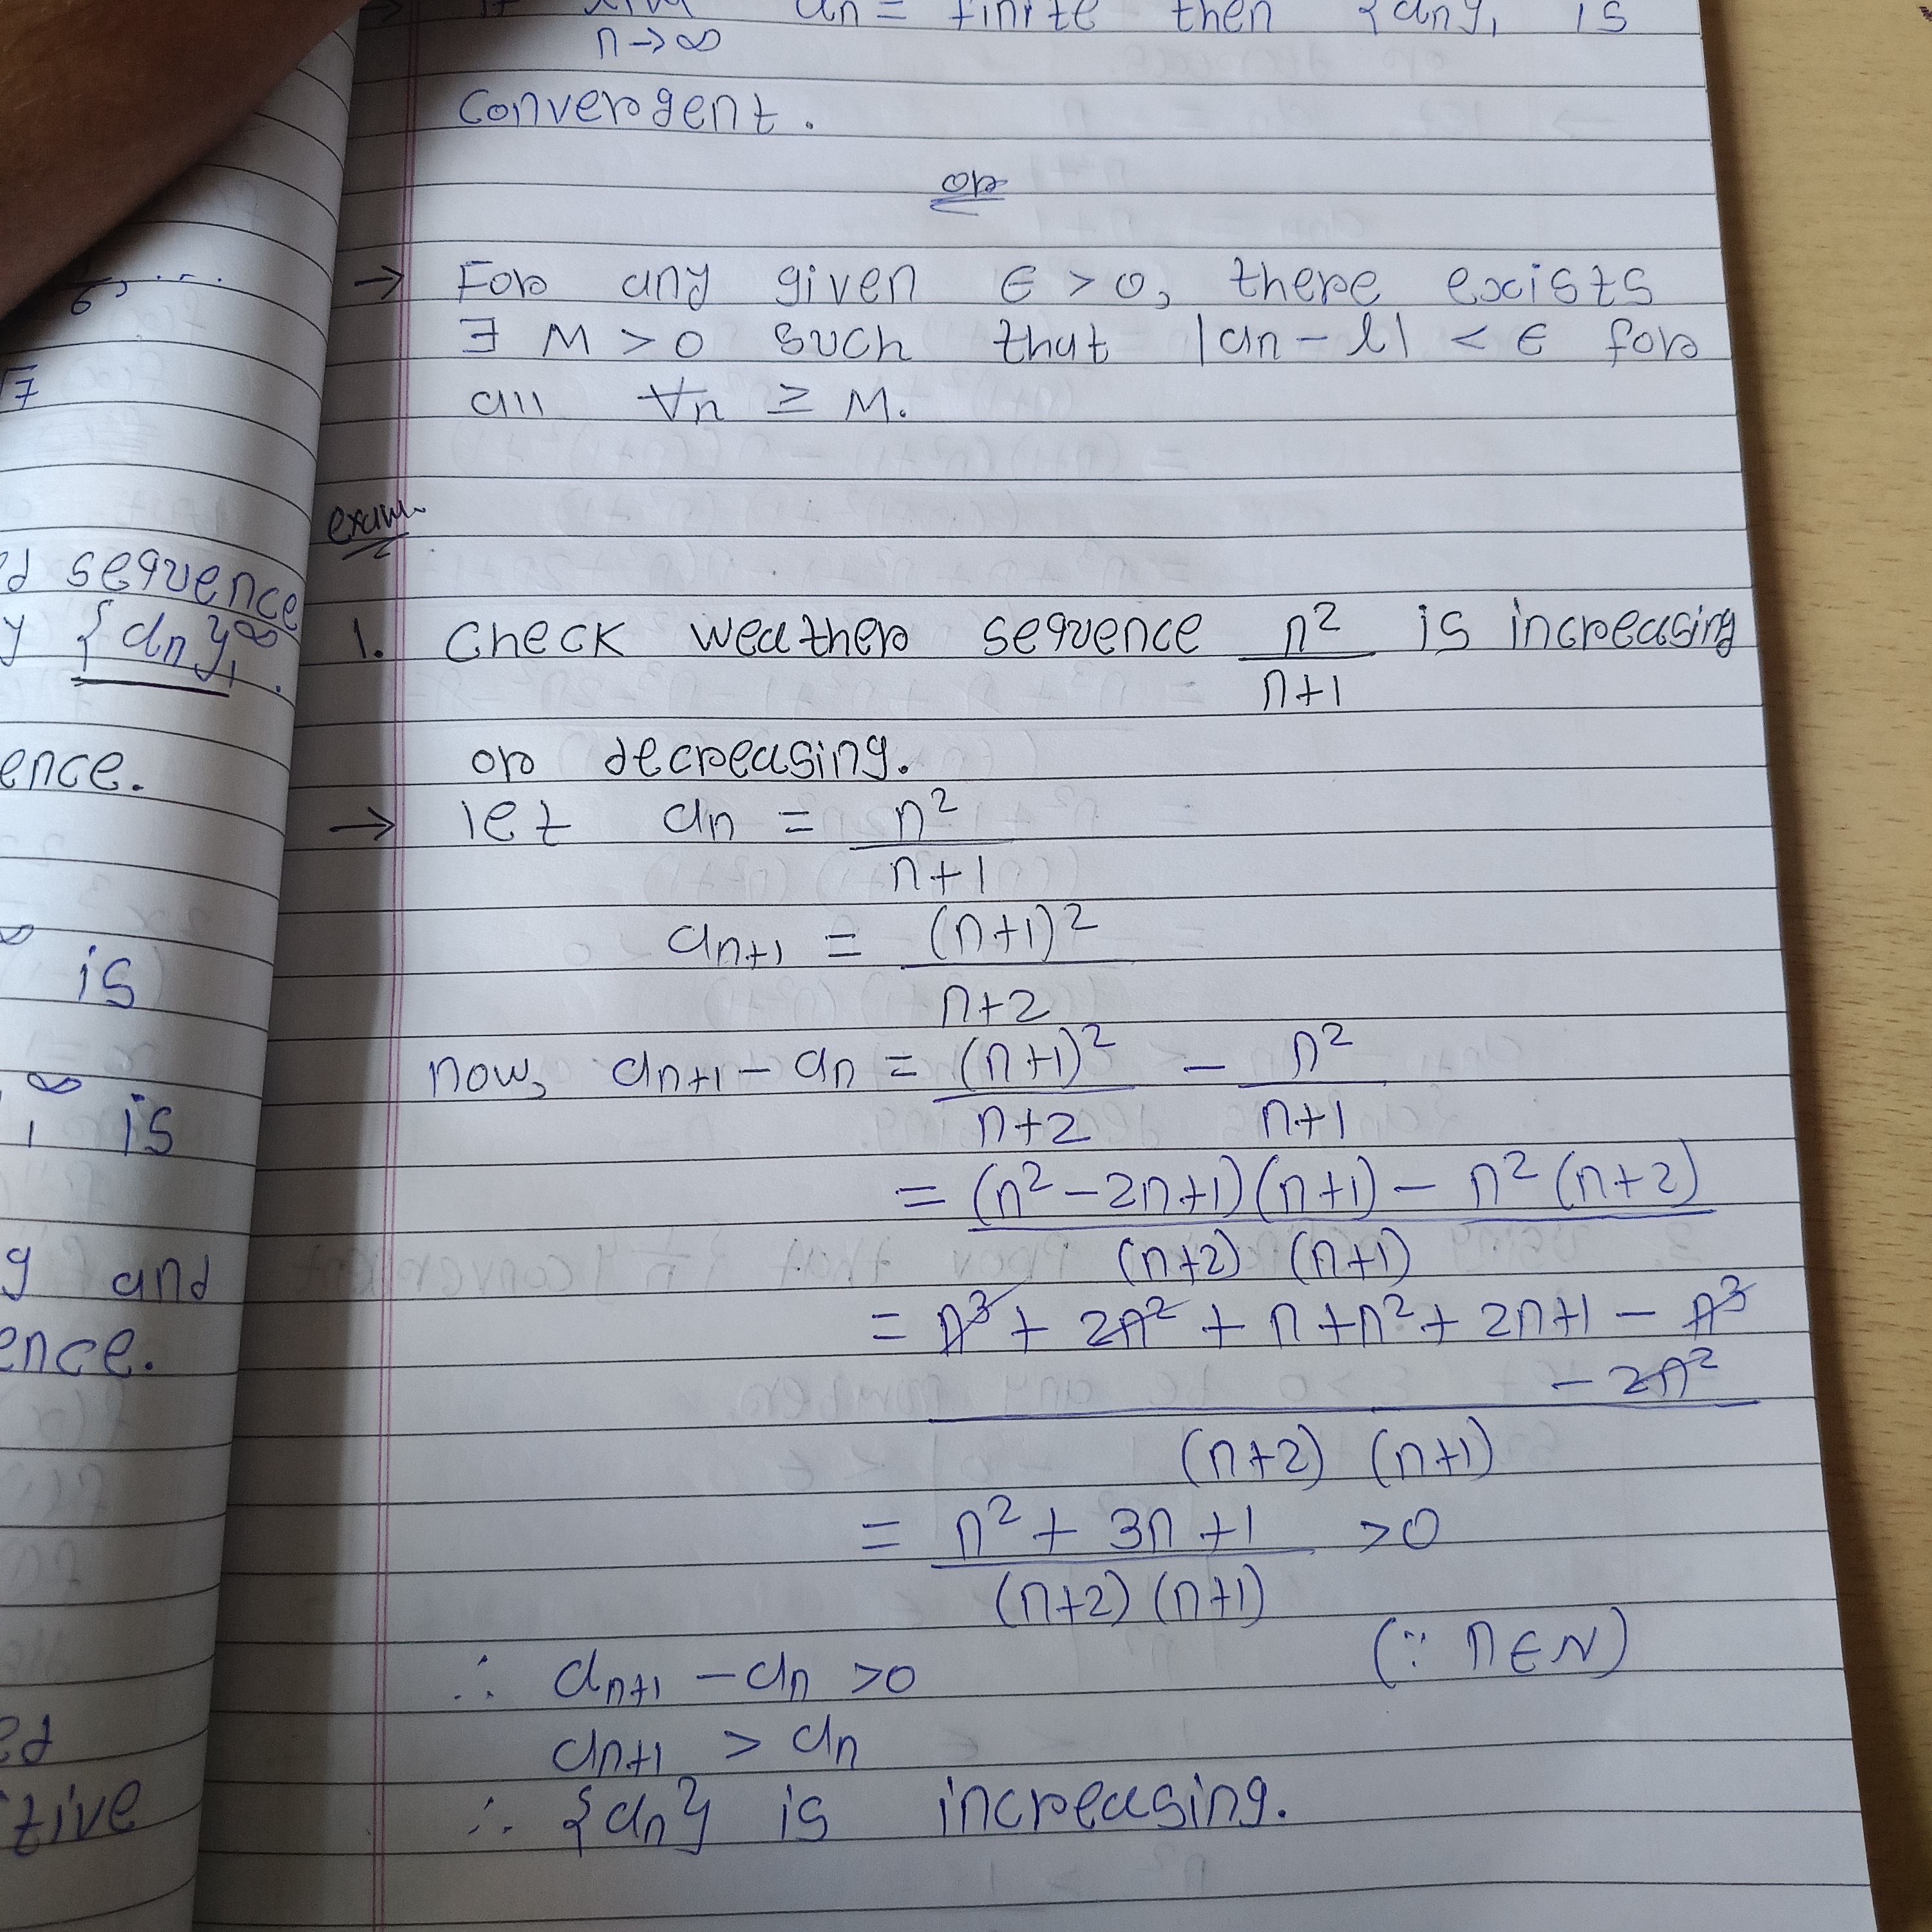 an = finite then {an}, is
n→∞
Convergent.
or
→ For any given ϵ > 0, there exists
∃ M > 0 such that |an - l| < ϵ for
all ∀n ≥ M.
exam.
1. Check weather sequence n²/n+1 is increasing
or decreasing.
→ let an = n²/n+1
an+1 = (n+1)²/n+2
now, an+1 - an = (n+1)²/n+2 - n²/n+1
= (n²-2n+1)(n+1) - n²(n+2)
(n+2) (n+1)
= n³ + 2n² + n + n² + 2n+1 - n³
- 2n²
(n+2) (n+1)
= n² + 3n + 1 >0
(n+2) (n+1)
(∵ n∈N)
∴ an+1 - an >0
an+1 > an
∴ {an} is increasing.
√7
sequence
{an}₁∞.
ence.
∞ is
∞ is
and
ence.